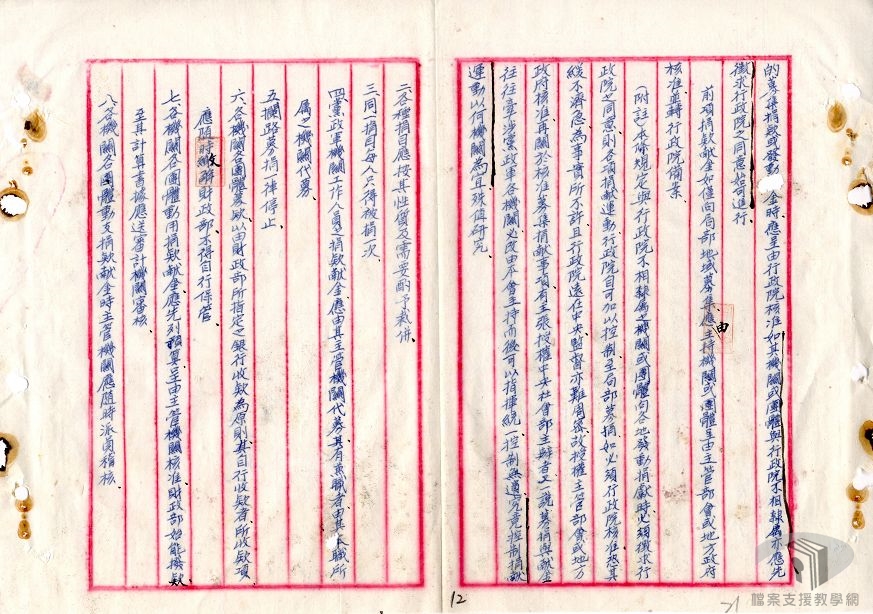 的募集捐款或發動金時應呈由行政院核准如其機關或團體與行政院不相隸屬亦應先
徵求行政院之同意始可進行
前項捐款獻金如僅向局部地域募集應由主持機關或團體呈由主管部會或地方政府
核准並轉行政院備案
(附註)本條規定與行政院不相隸屬之機關或團體向各地發動捐獻時必須徵求行
政院之同意則各項捐獻運動行政院自可加以控制至局部募捐如必須行政院核准恐其
緩不濟急為事實所不許且行政院遠在中央監督亦難周密故授權主管部會或地方
政府核准再關於核准募集捐獻事項有主張授權中央社會部主辦者又一說募捐與獻金
往往牽涉黨政軍各機關必改由不會主持而後可以指揮統控制無遺究竟控制捐獻
運動以何機關為宜殊值研究
二、各種捐目應按其性質及需要酌予裁併、
三、同一捐目每人只得被捐一次、
四、黨政軍機關工作人員之捐款獻金應由其主管機關代募其有兼職者由其本職所
屬之機關代募、
五、攔路募捐一律停止
六、各機關各團體募款以由財政部所指定之銀行收款為原則其自行收款者所收款項
應隨時解財政部不得自行保管
七、各機關各團體動用捐款獻金應先列預算呈由主管機關核准財政部始能撥款
至其計算書據應送審計機關審核、
八、各機關各團體動支捐款獻金時主管機關應隨時派員稽核、
12
檔案支援教學網